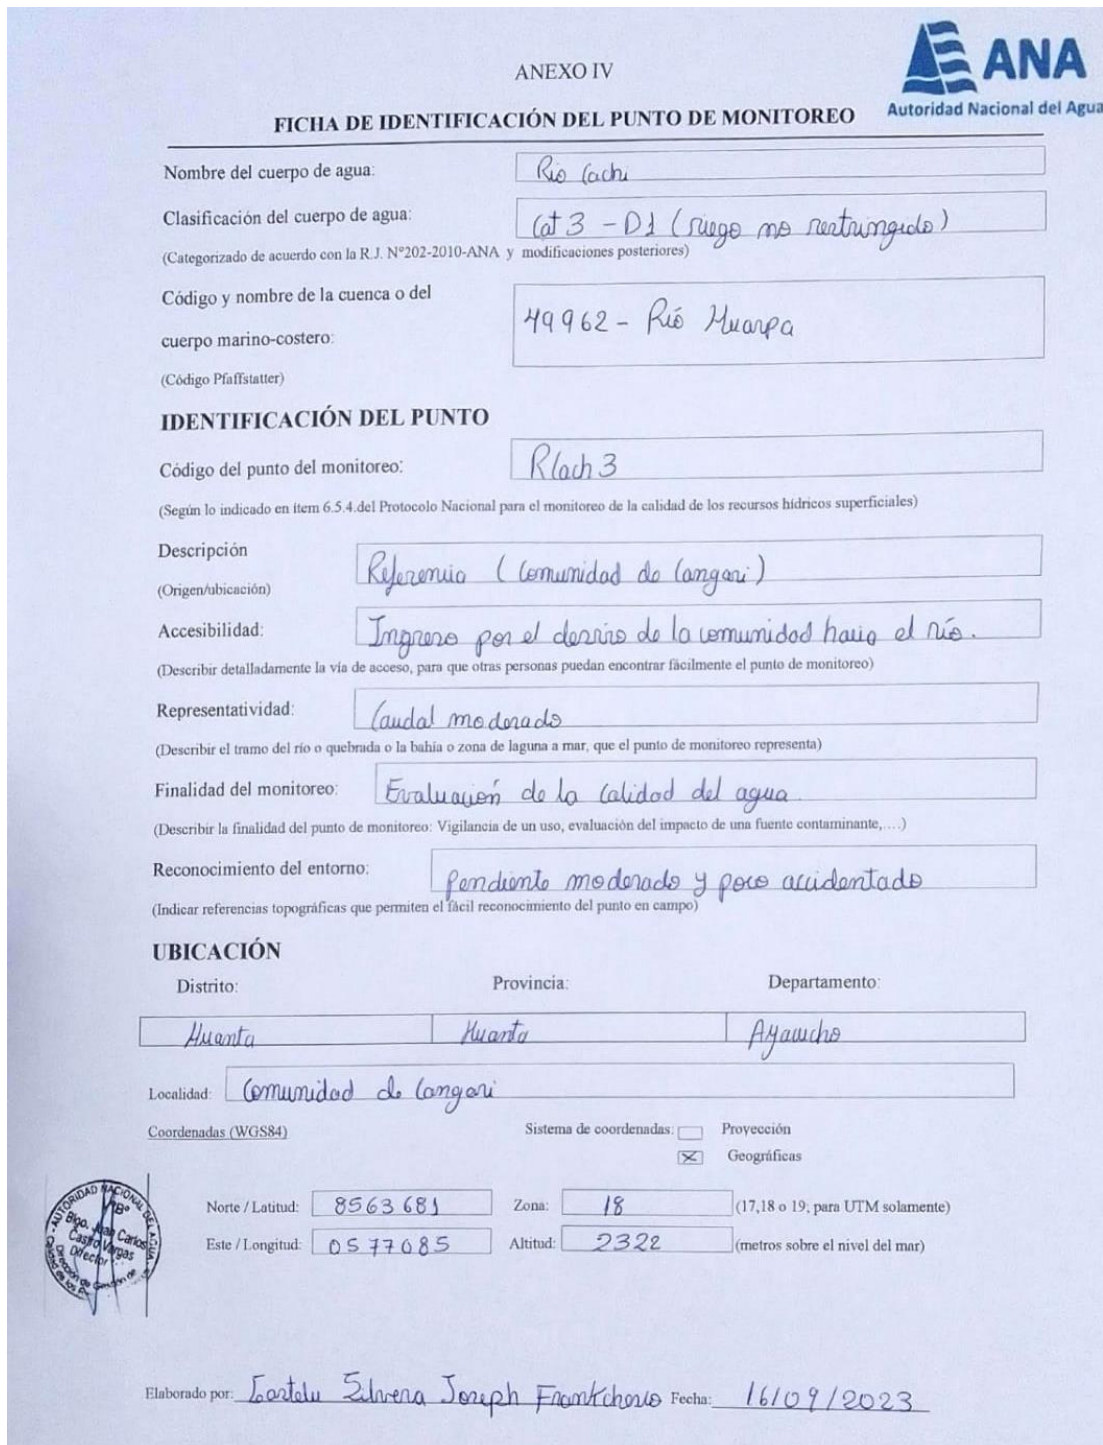 ANEXO IV
ANA
Autoridad Nacional del Agua
FICHA DE IDENTIFICACIÓN DEL PUNTO DE MONITOREO
Nombre del cuerpo de agua: Rio Cachi
Clasificación del cuerpo de agua: Cat 3 - D1 (riego no restringido)
(Categorizado de acuerdo con la R.J. N°202-2010-ANA y modificaciones posteriores)
Código y nombre de la cuenca o del
cuerpo marino-costero: 49962 - Rió Huarpa
(Código Pfaffstatter)
IDENTIFICACIÓN DEL PUNTO
Código del punto del monitoreo: RCach3
(Según lo indicado en ítem 6.5.4.del Protocolo Nacional para el monitoreo de la calidad de los recursos hídricos superficiales)
Descripción Referencia (Comunidad de Cangari)
(Origen/ubicación)
Accesibilidad: Ingreso por el desvio de la comunidad hacia el río.
(Describir detalladamente la vía de acceso, para que otras personas puedan encontrar fácilmente el punto de monitoreo)
Representatividad: Caudal moderado
(Describir el tramo del río o quebrada o la bahía o zona de laguna a mar, que el punto de monitoreo representa)
Finalidad del monitoreo: Evaluación de la calidad del agua
(Describir la finalidad del punto de monitoreo: Vigilancia de un uso, evaluación del impacto de una fuente contaminante,....)
Reconocimiento del entorno: Pendiente moderado y poco accidentado
(Indicar referencias topográficas que permiten el fácil reconocimiento del punto en campo)
UBICACIÓN
Distrito: Provincia: Departamento:
Huanta Huanta Ayacucho
Localidad: Comunidad de Cangari
Coordenadas (WGS84) Sistema de coordenadas: Proyección
X Geográficas
Norte / Latitud: 8563681 Zona: 18 (17,18 o 19; para UTM solamente)
Este / Longitud: 0577085 Altitud: 2322 (metros sobre el nivel del mar)
AUTORIDAD NACIONAL DEL AGUA
VºBº
Blgo. Juan Carlos
Castro Vargas
Director
Dirección de Gestión de
Calidad de los
Elaborado por: Joseph Fecha: 16/09/2023